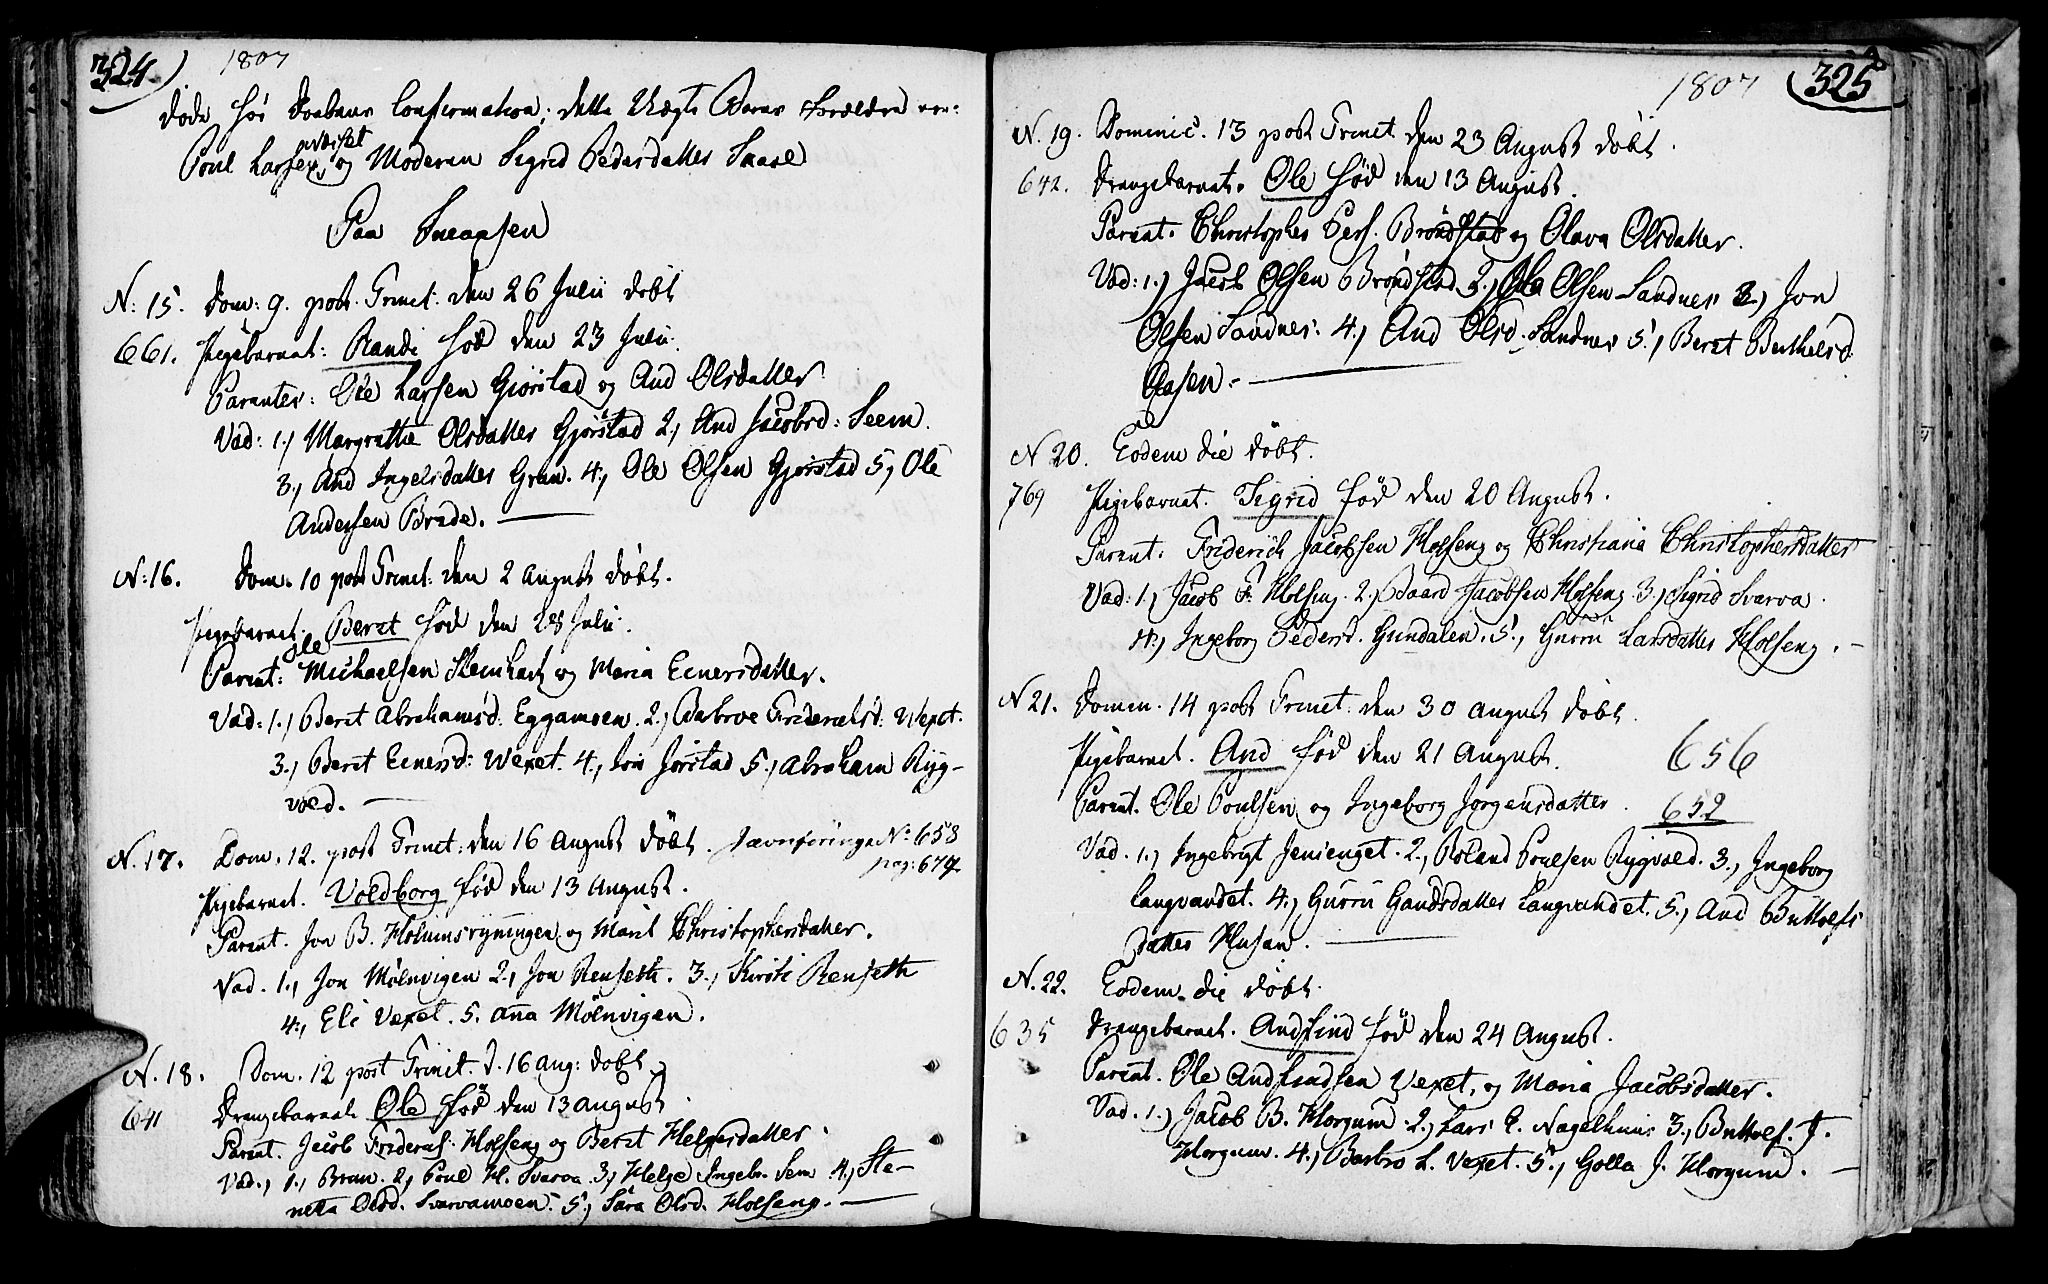 324.
1807
døde før Daabens Confirmation; dette Uægte Barns Forældre var:
Poul Larsen
og Moderen Sigrid Pedersdatter Saasl
Paa Sneaasen
N: 15. Dom: 9. post. Trinit: den 26 Julii døbt
661. Pigebarnet: Randi fød den 23 Julii.
Parenter: Ole Larsen Gjørstad og And Olsdatter
Vad: 1., Margrethe Olsdatter Gjørstad 2., And Jacobsd: Seem.
3., And Ingelsdatter Gran. 4., Ole Olsen Gjørstad 5., Ole
Andersen Brede.
N: 16. Dom. 10 post Trinit: den 2 August døbt.
Pigebarnet. Beret fød den 28 Julii.
Ole
Parent: Michaelsen Steinkack og Maria Einersdatter.
Vad: 1., Beret Abrahamsd: Eggamoen. 2., Babroe Friderichsd. Wexet.
3., Beret Einersd: Wexet. 4., Jon Jørstad 5., Abraham Ryg-
vold.
N. 17. Dom. 12. post Trinit: den 16 August døbt. Jævnføringe No: 653
pag: 674
Pigebarnet. Voldborg fød den 13 August.
Parent. Jon B. Holmsrynningen og Marit Christophersdatter.
Vad. 1., Jon Mølnvigen 2., Jon Renseth. 3., Kirsti Renseth
4., Eli Vexet. 5. Ana Mølnvigen.
N. 18. Dom. 12 post Trinit. d. 16 Aug: døbt
641 Drengebarnet Ole fød den 13 August.
Parent. Jacob Frideras: Holseng og Beret Helgesdatter
Vad., 1., Brun. 2., Poul H. Svarva. 3., Helge Ingebr. Sem 4., Ste-
netta Olsd. Svarvamoen. 5., Sara Olsd. Holseng.
1807
325
N. 19. Dominic. 13 post Trinit. den 23 August døbt.
642. Drengebarnet. Ole fød den 13 August.
Parent. Christopher Pers. Brøndstad og Olava Olsdatter.
Vad: 1., Jacob Olsen Brøndstad 2., Ole Olsen Sandnes 3., Jon
Olsen Sandnes. 4., And Olsd. Sandnes 5., Beret Berthelsd
Aasen.
N 20. Eodem die døbt.
769 Pigebarnet. Sigrid fød den 20 August.
Parent: Friderich Jacobsen Holseng og Christiana Christophersdatter
Vad: 1., Jacob F. Holseng. 2., Baard Jacobsen Holseng 3., Sigrid Svarva.
4., Ingeborg Pedersd. Gundalen. 5., Gurru Larsdatter Holseng.
N 21. Domin. 14 post Trinit: den 30 August døbt.
Pigebarnet. And fød den 21 August. 656
Parent. Ole Poulsen og Ingeborg Jørgensdatter. 652
Vad. 1., Ingebrigt Jenienget. 2., Roland Poulsen Rygvold. 3., Ingeborg
Langvandet. 4., Gurru Gaudsdatter Langvandet. 5., And Buttolfs
datter Husan.
N. 22. Eodem die døbt.
635 Drengebarnet. Andfind fød den 24 August.
Parent. Ole Andfindsen Vexet, og Maria Jacobsdatter.
Vad. 1., Jacob B. Horgum. 2., Lars E. Nagelhuus 3., Buttolf. J.
Horgum. 4., Barbro L. Vexet. 5., Golla J. Horgum.